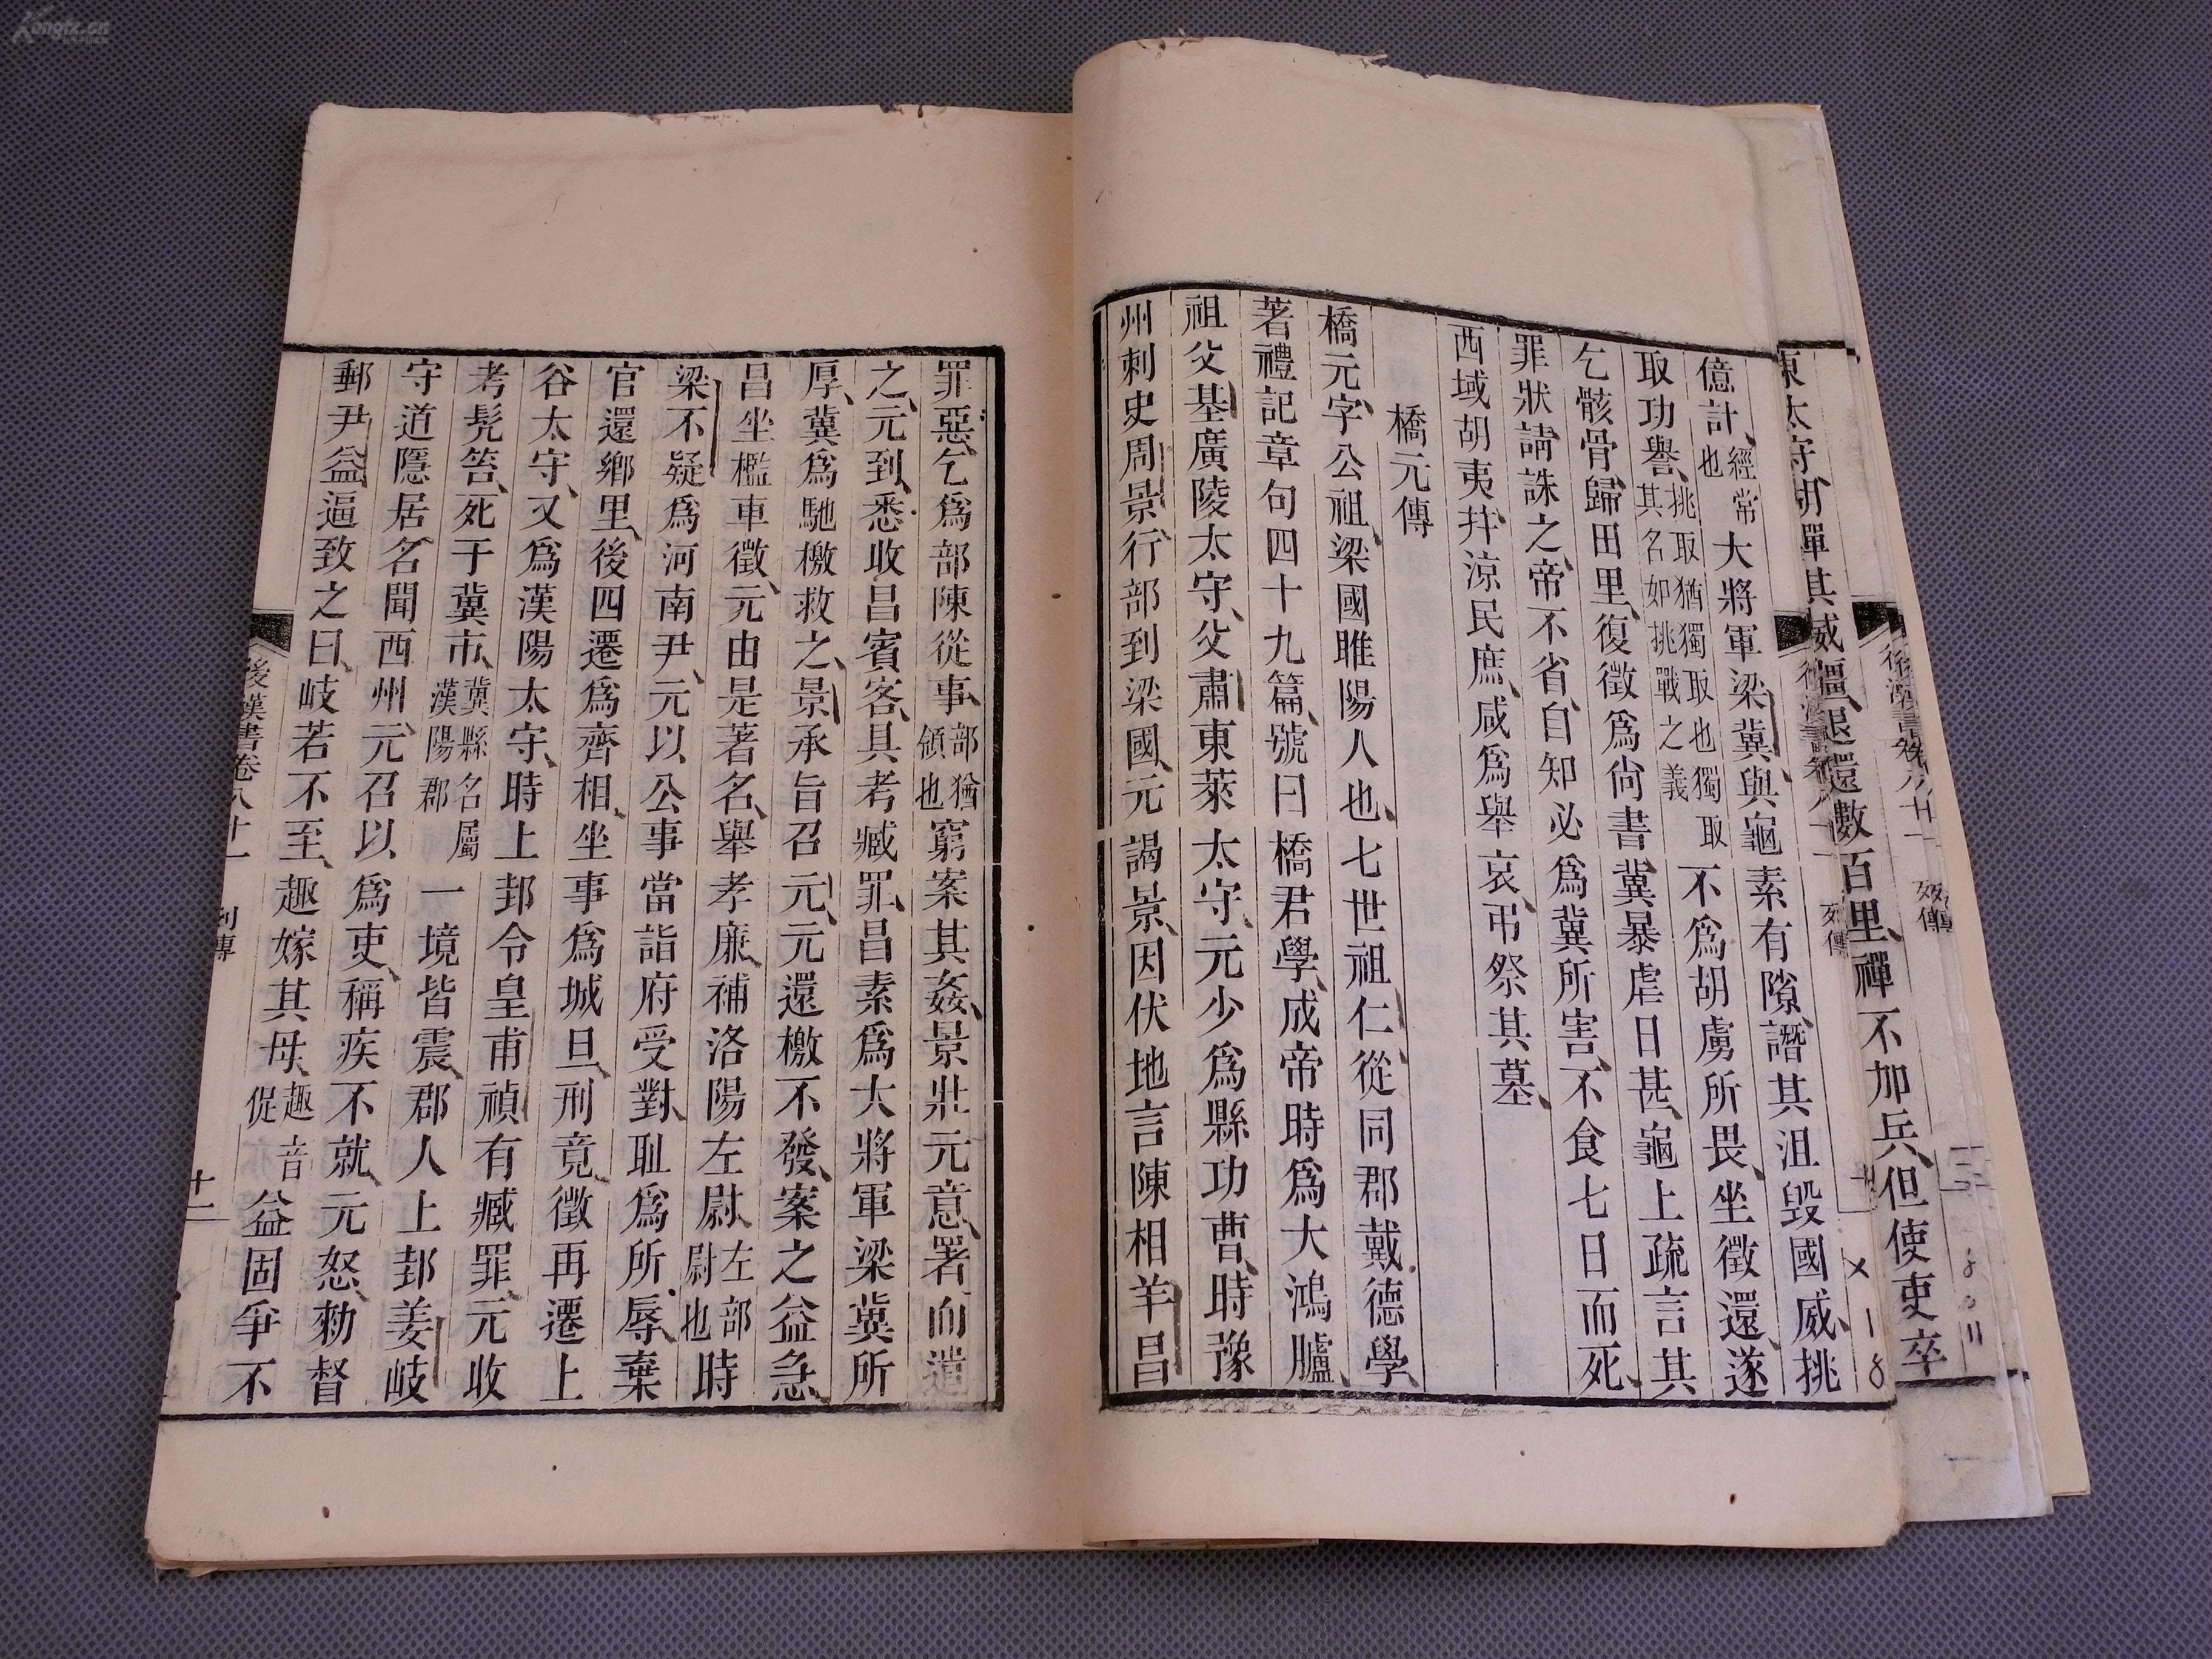 東太守胡
億計經常也大將軍梁冀與龜素有隙譖其沮毀國威挑
取功譽挑取猶獨取也獨取其名如挑戰之義不爲胡虜所畏坐徵還遂
乞骸骨歸田里復徵爲尙書冀暴虐日甚龜上疏言其
罪狀請誅之帝不省自知必爲冀所害不食七日而死
西域胡夷幷涼民庶咸爲舉哀弔祭其墓
橋元傳
橋元字公祖梁國睢陽人也七世祖仁從同郡戴德學
著禮記章句四十九篇號曰橋君學成帝時爲大鴻臚
祖父基廣陵太守父肅東萊太守元少爲縣功曹時豫
州刺史周景行部到梁國元謁景因伏地言陳相羊昌
罪惡乞爲部陳從事部猶領也窮案其姦景壯元意署而遣
之元到悉收昌賓客具考臧罪昌素爲大將軍梁冀所
厚冀爲馳檄救之景承旨召元元還檄不發案之益急
昌坐檻車徵元由是著名舉孝廉補洛陽左尉左部尉也時
梁不疑爲河南尹元以公事當詣府受對耻爲所辱棄
官還鄉里後四遷爲齊相坐事爲城旦刑竟徵再遷上
谷太守又爲漢陽太守時上邽令皇甫禎有臧罪元收
考髡笞死于冀市冀縣名屬漢陽郡一境皆震郡人上邽姜岐
守道隱居名聞西州元召以爲吏稱疾不就元怒勑督
郵尹益逼致之曰岐若不至趣嫁其母趣音促益固爭不
後漢書卷八十一 列傳 十二
不加兵但使吏卒
×18
Kongfz.cn